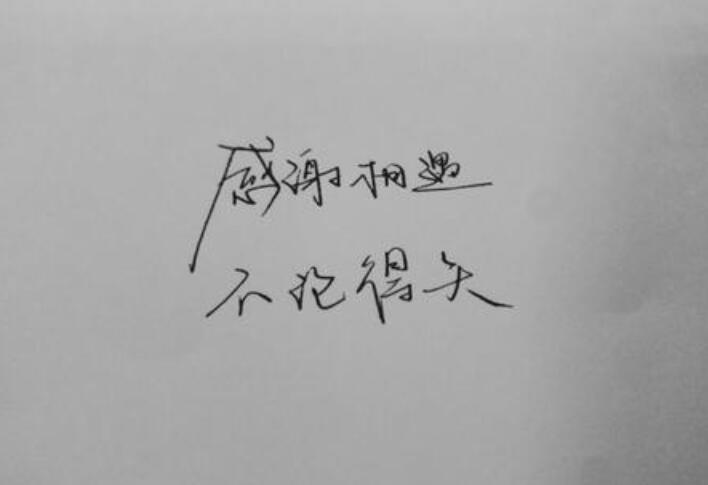 感谢相遇
不论得失